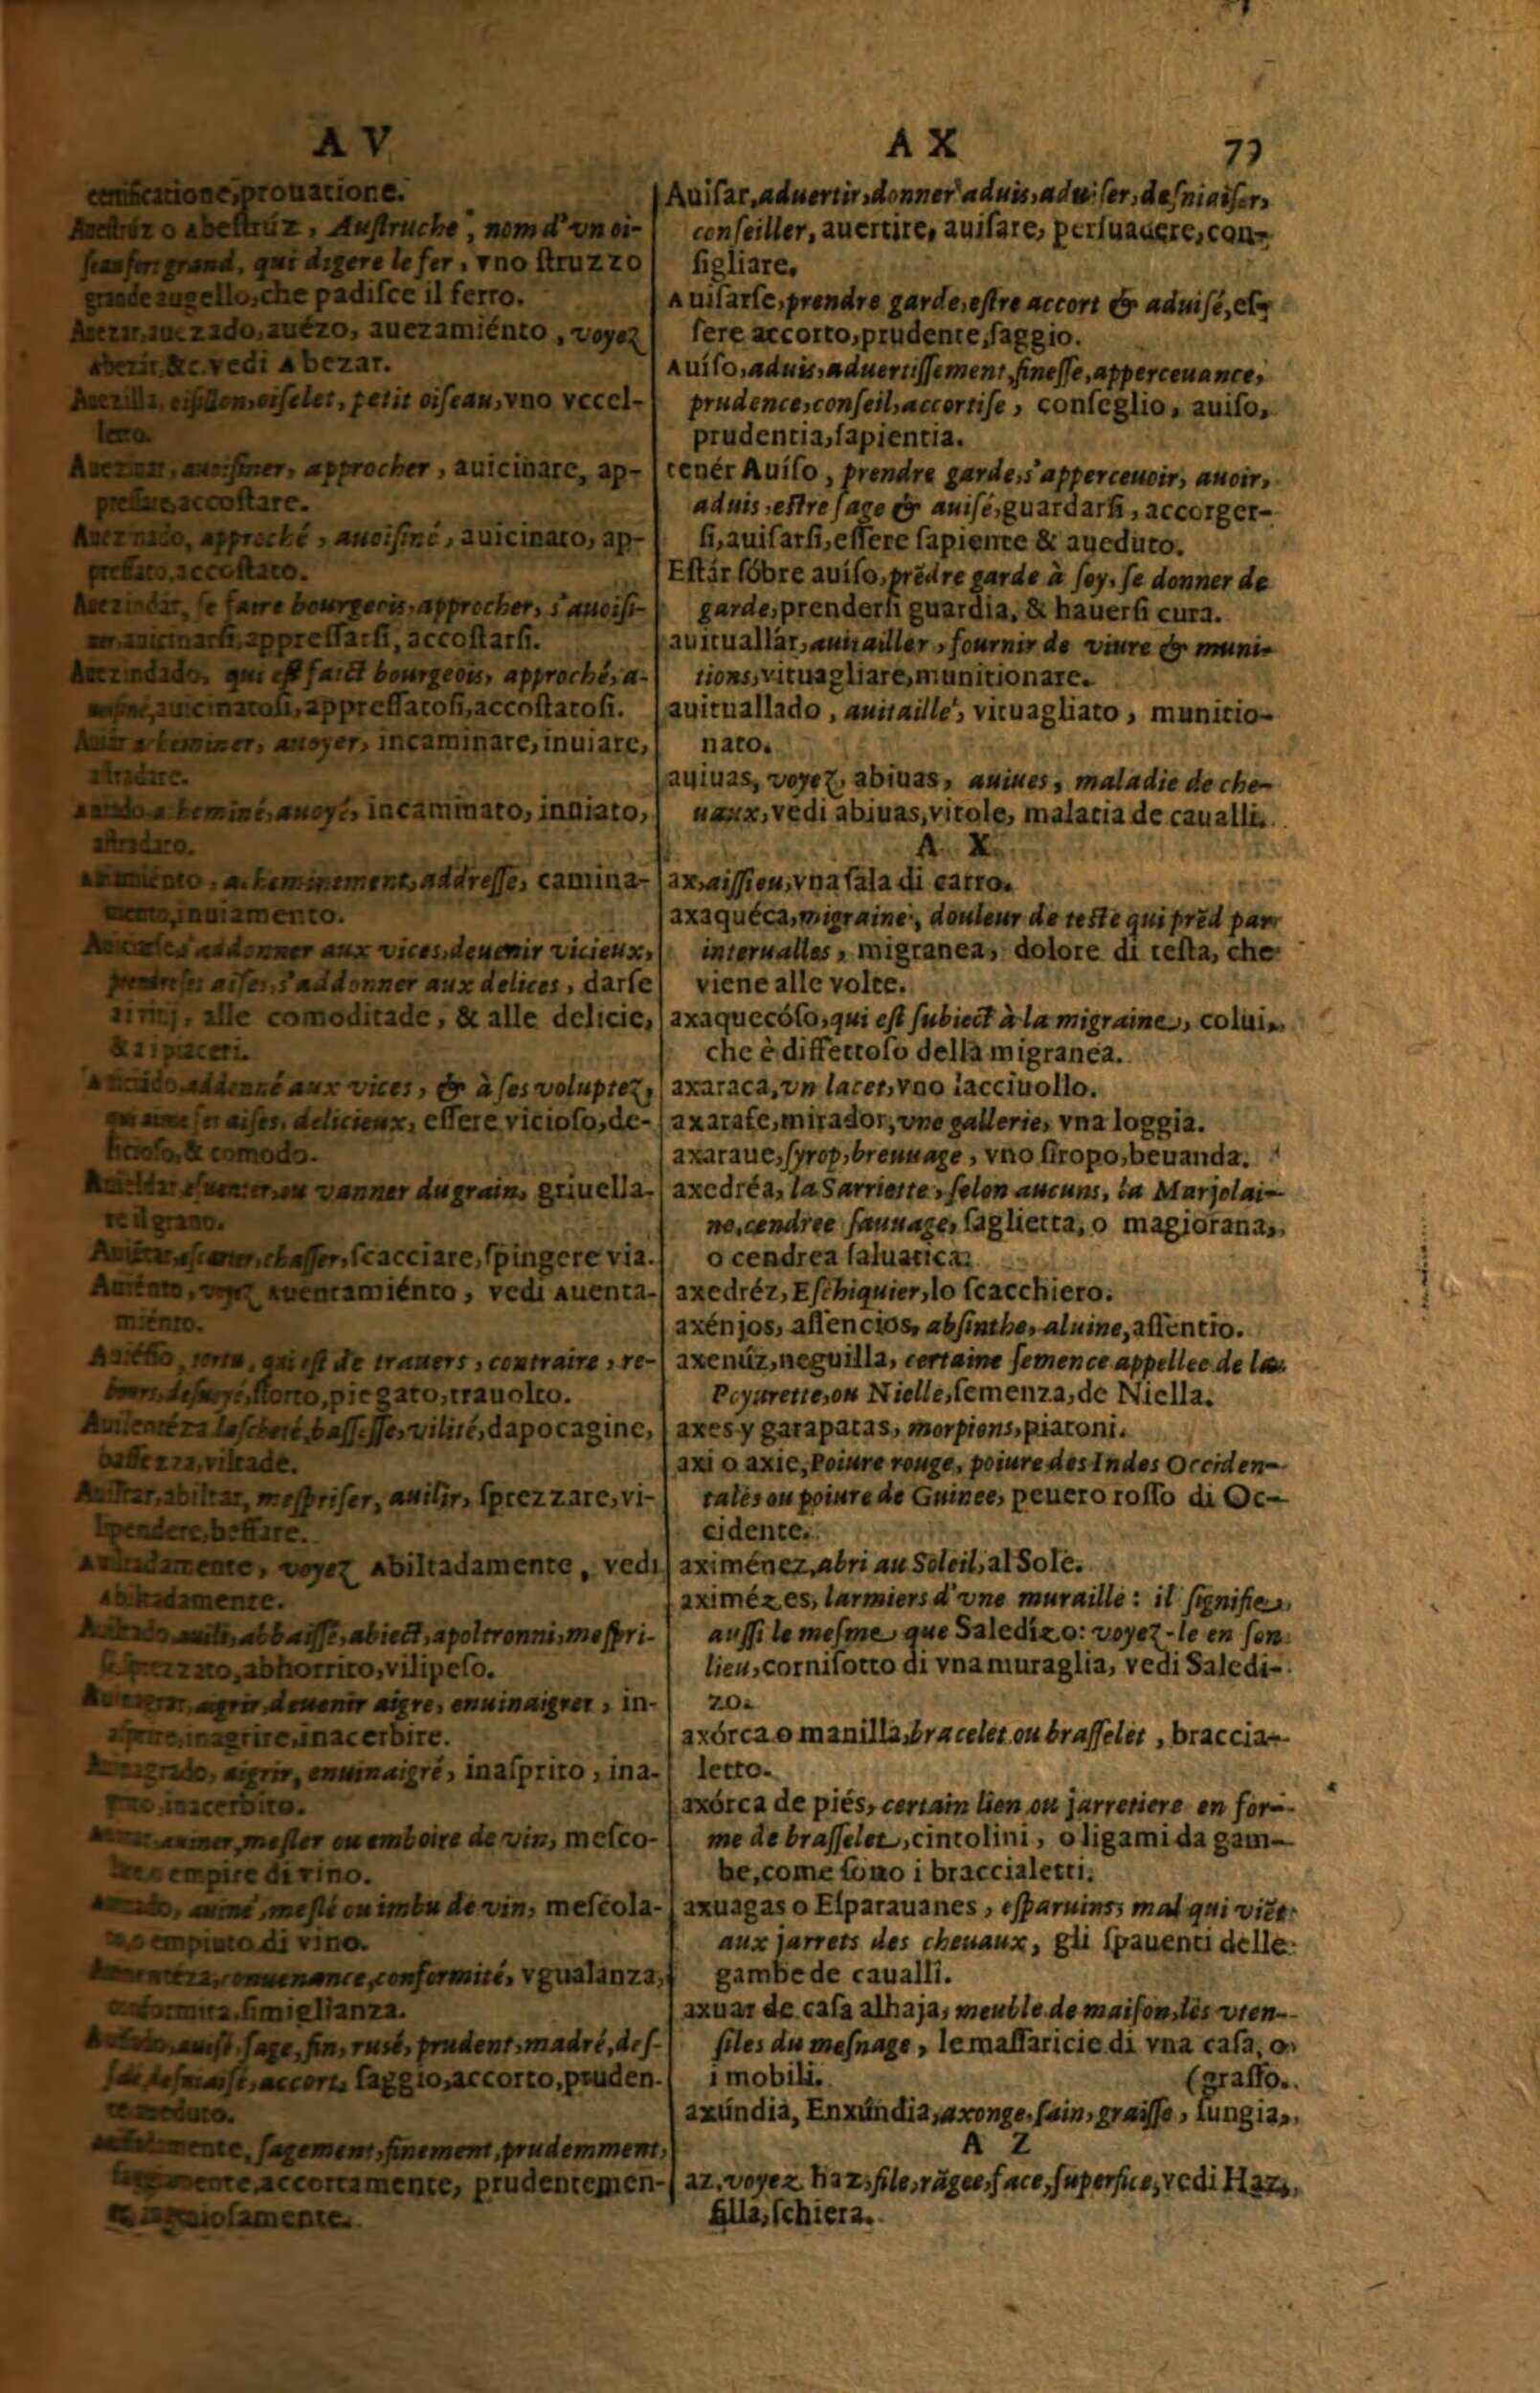 A V
A X
77
certificatione, prouatione.
Auestrúz o abestrúz, Austruche, nom d'vn oi-
seau fort grand, qui digere le fer, vno struzzo
grande augello, che padisce il ferro.
Auezar, auezado, auézo, auezamiénto, voyez
abezar, &c. vedi Abezar.
Auezilla, oisillon, oiselet, petit oiseau, vno vccel-
letto.
Auezinar, auoisiner, approcher, auicinare, ap-
pressare, accostare.
Auezinado, approché, auoisiné, auicinato, ap-
pressato, accostato.
Auezindar, se faire bourgeois, approcher, s'auoisi-
ner, auicinarsi, appressarsi, accostarsi.
Auezindado, qui est faict bourgeois, approché, a-
auicinatosi, appressatosi, accostatosi.
Auiar acheminer, auoyer, incaminare, inuiare,
astradare.
auiado acheminé, auoyé, incaminato, inuiato,
astradato.
auiamiento, acheminement, addresse, camina-
mento, inuiamento.
s'addonner aux vices, deuenir vicieux,
prendre ses aises, s'addonner aux delices, darse
ai vitij, alle comoditade, & alle delicie,
& a i piaceri.
addonné aux vices, & à ses voluptez,
qui aime ses aises, delicieux, essere vicioso, de-
licioso, & comodo.
esuenter, ou vanner du grain, griuella-
re il grano.
escarter, chasser, scacciare, spingere via.
Auiénto, voyez Auentamiénto, vedi Auenta-
miénto.
Auiesso, tortu, qui est de trauers, contraire, re-
bours, storto, piegato, trauolto.
Auilentéza lascheté, bassesse, vilité, dapocagine,
bassezza, viltade.
Auiltar, abiltar, mespriser, auilir, sprezzare, vi-
lipendere, beffare.
Auiltadamente, voyez Abiltadamente, vedi
Abiltadamente.
Auiltado, auili, abbaissé, abiect, apoltronni, mespri-
sé, sprezzato, abhorrito, vilipeso.
Auinagrar, aigrir, deuenir aigre, enuinaigrer, in-
asprire, inagrire, inacerbire.
Auinagrado, aigrir, enuinaigré, inasprito, ina-
grito, inacerbito.
auinar auiner, mesler ou emboire de vin, mesco-
lare e empire di vino.
auinado, auiné, meslé ou imbu de vin, mescola-
to, o empiuto di vino.
conuenance, conformité, vgualanza,
conformita, simiglianza.
Auisado, auisé, sage, fin, rusé, prudent, madré, des-
accort, saggio, accorto, pruden-
te aueduto.
auisadamente, sagement, finement, prudemment,
saggiamente, accortamente, prudentemen-
te, ingeniosamente.
Auisar, aduertir, donner aduis, aduiser, desniaiser,
conseiller, auertire, auisare, persuadere, con-
sigliare.
Auisarse, prendre garde, estre accort & aduisé, es-
sere accorto, prudente, saggio.
Auíso, aduis, aduertissement, finesse, apperceuance,
prudence, conseil, accortise, conseglio, auiso,
prudentia, sapientia.
tenér Auíso, prendre garde, s'apperceuoir, auoir,
aduis, estre sage & auisé, guardarsi, accorger-
si, auisarsi, essere sapiente & aueduto.
Estár sóbre auiso, prēdre garde à soy, se donner de
garde, prendersi guardia, & hauersi cura.
auituallár, auitailler, fournir de viure & muni-
tions, vituagliare, munitionare.
auituallado, auitaillé, vituagliato, munitio-
nato.
auiuas, voyez, abiuas, auiues, maladie de che-
uaux, vedi abiuas, vitole, malatia de caualli.
A X
ax, aissieu, vna sala di carro.
axaquéca, migraine, douleur de teste qui prēd par
interualles, migranea, dolore di testa, che
viene alle volte.
axaquecóso, qui est subiect à la migraine, colui,
che è diffettoso della migranea.
axaraca, vn lacet, vno lacciuollo.
axarafe, mirador, vne gallerie, vna loggia.
axaraue, syrop, breuuage, vno siropo, beuanda.
axedréa, la Sarriette, selon aucuns, la Marjolai-
ne, cendree sauuage, saglietta, o magiorana,
o cendrea saluatica.
axedréz, Eschiquier, lo scacchiero.
axénjos, assencios, absinthe, aluine, assentio.
axenúz, neguilla, certaine semence appellee de la
Poyurette, ou Nielle, semenza, de Niella.
axes y garapatas, morpions, piatoni.
axi o axie, Poiure rouge, poiure des Indes Occiden-
tales ou poiure de Guinee, peuero rosso di Oc-
cidente.
aximénez, abri au Soleil, al Sole.
aximézes, larmiers d'vne muraille: il signifie
aussi le mesme que Saledízo: voyez-le en son
lieu, cornisotto di vna muraglia, vedi Saledi-
zo.
axórca o manilla, bracelet ou brasselet, braccia-
letto.
axórca de piés, certain lien ou jarretiere en for-
me de brasselet, cintolini, o ligami da gam-
be, come sono i braccialetti.
axuagas o Esparauanes, esparuins, mal qui viēt
aux jarrets des cheuaux, gli spauenti delle
gambe de caualli.
axuar de casa alhaja, meuble de maison, les vten-
siles du mesnage, le massaricie di vna casa, o
i mobili. (grasso.
axúndia, Enxúndia, axonge, sain, graisse, sungia,
A Z
az, voyez haz, file, rāgee, face, superfice, vedi Haz,
filla, schiera.